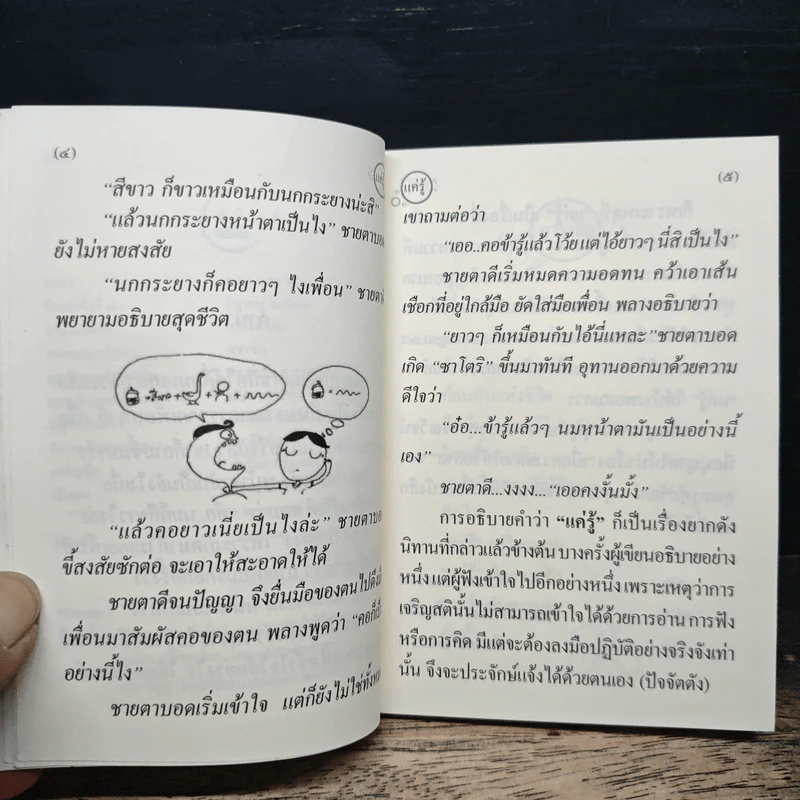 (๔)
“สีขาว ก็ขาวเหมือนกับนกกระยางน่ะสิ”
“แล้วนกกระยางหน้าตาเป็นไง” ชายตาบอด
ยังไม่หายสงสัย
“นกกระยางก็คอยาวๆ ไงเพื่อน” ชายตาดี
พยายามอธิบายสุดชีวิต
“แล้วคอยาวเนี่ยเป็นไงล่ะ” ชายตาบอด
ขี้สงสัยซักต่อ จะเอาให้สะอาดให้ได้
ชายตาดีจนปัญญา จึงยื่นมือของตนไปดึงมือ
เพื่อนมาสัมผัสคอของตน พลางพูดว่า “คอก็เป็น
อย่างนี้ไง”
ชายตาบอดเริ่มเข้าใจ แต่ก็ยังไม่ใช่ทั้งหมด
แค่รู้
(๕)
เขาถามต่อว่า
“เออ..คอข้ารู้แล้วโว้ย แต่ไอ้ยาวๆ นี่สิเป็นไง”
ชายตาดีเริ่มหมดความอดทน คว้าเอาเส้น
เชือกที่อยู่ใกล้มือ ยัดใส่มือเพื่อน พลางอธิบายว่า
“ยาวๆ ก็เหมือนกับไอ้นี่แหละ” ชายตาบอด
เกิด “ซาโตริ” ขึ้นมาทันที อุทานออกมาด้วยความ
ดีใจว่า
“อ๋อ...ข้ารู้แล้วๆ นมหน้าตามันเป็นอย่างนี้
เอง”
ชายตาดี...งงงง...“เออคงงั้นมั้ง”
การอธิบายคำว่า “แค่รู้” ก็เป็นเรื่องยากดัง
นิทานที่กล่าวแล้วข้างต้น บางครั้งผู้เขียนอธิบายอย่าง
หนึ่ง แต่ผู้ฟังเข้าใจไปอีกอย่างหนึ่ง เพราะเหตุว่าการ
เจริญสตินั้นไม่สามารถเข้าใจได้ด้วยการอ่าน การฟัง
หรือการคิด มีแต่จะต้องลงมือปฏิบัติอย่างจริงจังเท่า
นั้น จึงจะประจักษ์แจ้งได้ด้วยตนเอง (ปัจจัตตัง)